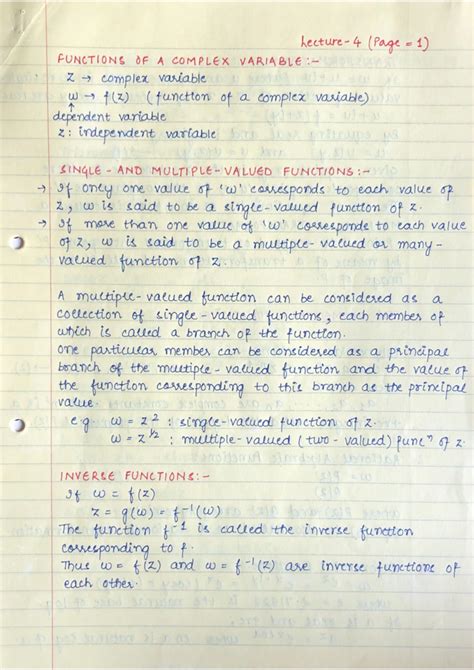 Lecture-4 (Page = 1)
FUNCTIONS OF A COMPLEX VARIABLE :-
z → complex variable
w → f(z) (function of a complex variable)
↑
dependent variable
z : independent variable
SINGLE - AND MULTIPLE-VALUED FUNCTIONS :-
→ If only one value of 'w' corresponds to each value of
z, w is said to be a single-valued function of z.
→ If more than one value of 'w' corresponds to each value
of z, w is said to be a multiple-valued or many-
valued function of z.
A multiple-valued function can be considered as a
collection of single-valued functions, each member of
which is called a branch of the function.
One particular member can be considered as a principal
branch of the multiple-valued function and the value of
the function corresponding to this branch as the principal
value.
e.g. w = z² : single-valued function of z.
w = z^1/2 : multiple-valued (two-valued) funcⁿ of z.
INVERSE FUNCTIONS :-
If w = f(z)
z = g(w) = f⁻¹(w)
The function f⁻¹ is called the inverse function
corresponding to f.
Thus w = f(z) and w = f⁻¹(z) are inverse functions of
each other.